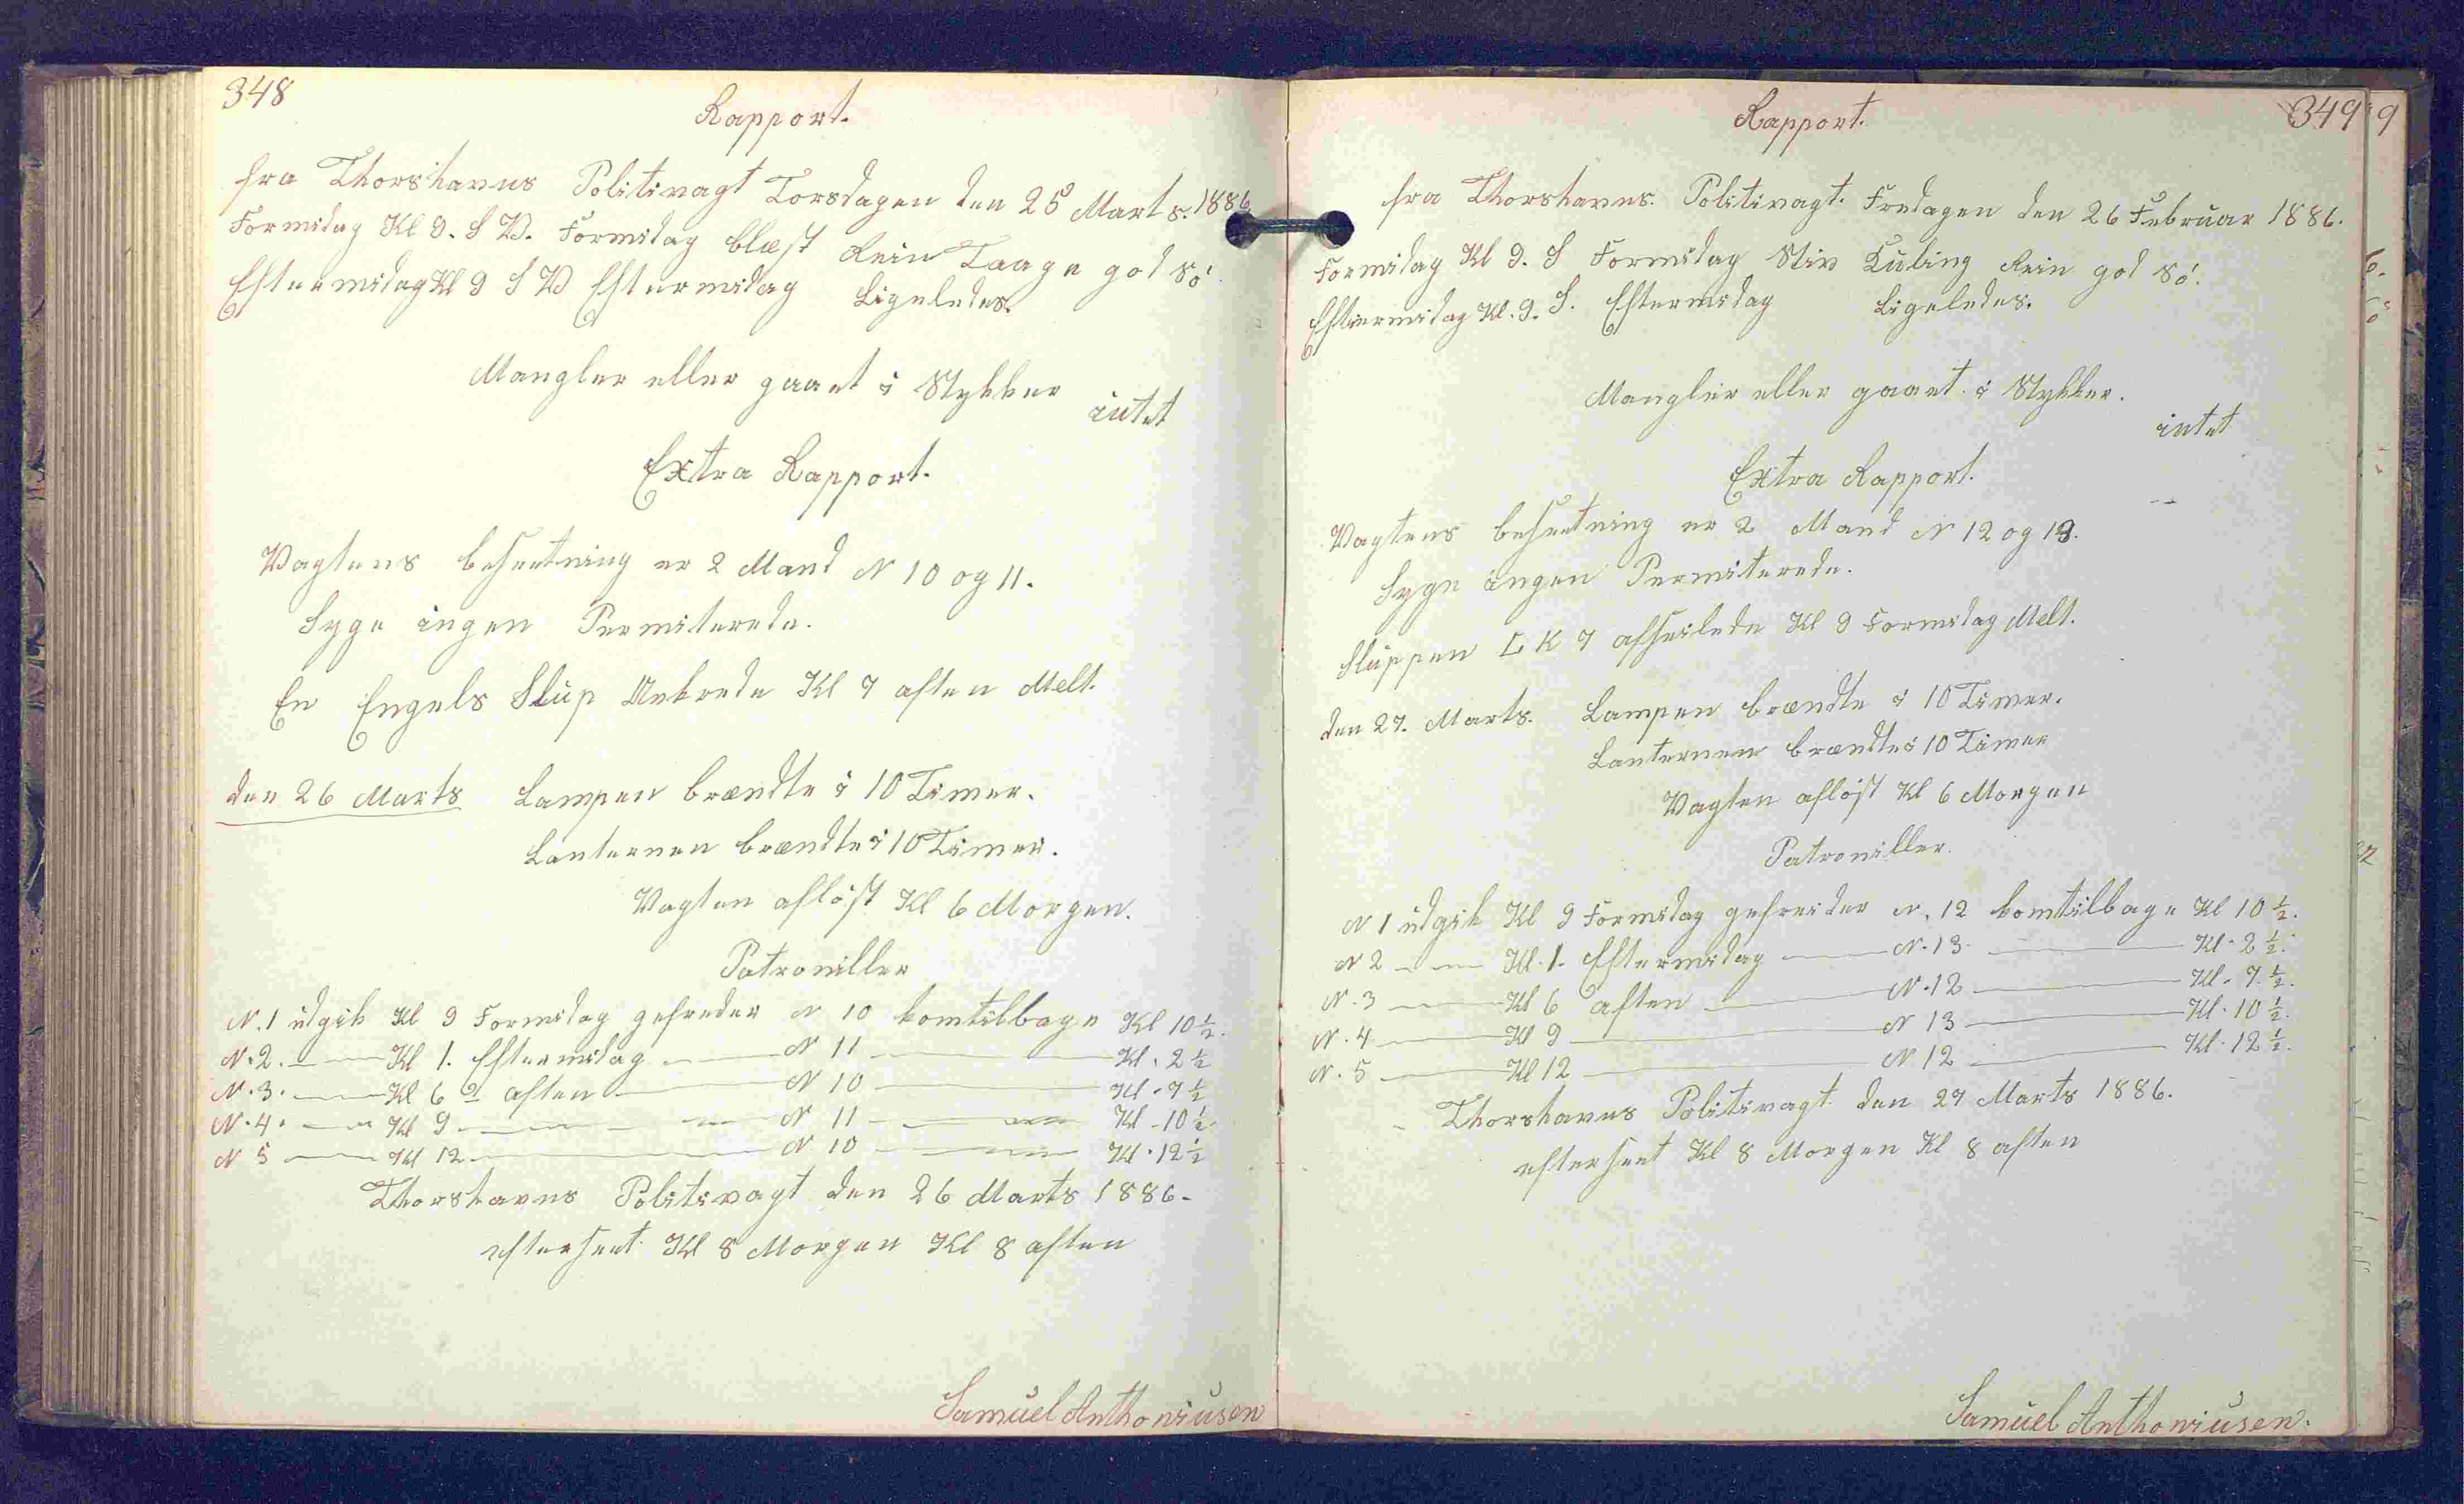 348
Rapport.
fra Thorshavns Politivagt Torsdagen den 25 Marts. 1886
Formidag Kl 9. S V. Formidag blæst Rein Taage god Sö.
Eftermidag Kl 9 S V Eftermidag Ligeledes.
Mangler eller gaaet i Stykker
intet
Extra Rapport.
Vagtens besætning er 2 Mand N 10 og 11.
Syge ingen Permiterede.
En Engels Slup Ankrede Kl 7 aften Melt.
den 26 Marts Lampen brændte i 10 Timer.
Lanternen brændte i 10 Timer.
Vagten aflöst Kl 6 Morgen.
Patroniller
N. 1 udgik Kl 9 Formidag gefreder N 10 kom tilbage Kl 10 ½.
N. 2. — — Kl 1. Eftermidag — N 11 — Kl. 2 ½
N. 3. — Kl 6 aften — N 10 — Kl. 7 ½
N. 4. — Kl 9 — — N 11 — Kl. 10 ½
N 5 — Kl 12 — N 10 — Kl. 12 ½
Thorshavns Politivagt den 26 Marts 1886.
efterseet Kl 8 Morgen Kl 8 aften
Samuel Anthoniusen
349
Rapport.
fra Thorshavns. Politivagt. Fredagen den 26 Februar 1886.
Formidag Kl 9. S Formidag Stiv Kuling Rein god Sö.
Eftermidag Kl. 9. S. Eftermidag Ligeledes.
Mangler eller gaaet i Stykker.
intet
Extra Rapport.
Vagtens besætning er 2 Mand N 12 og 13.
Syge ingen Permiterede.
Sluppen L K 7 afseilede Kl 9 Formidag Melt.
den 27. Marts. Lampen brændte i 10 Timer.
Lanternen brændte i 10 Timer
Vagten aflöst Kl 6 Morgen
Patroniller.
N 1 udgik Kl 9 Formidag gefreider N. 12 kom tilbage Kl 10 ½.
N 2 — — Kl. 1. Eftermidag — N. 13 — Kl. 2 ½.
N. 3 — Kl 6 aften — N. 12 — Kl. 7 ½.
N. 4 — Kl 9 — N 13 — Kl. 10 ½.
N. 5 — Kl 12 — N 12 — Kl. 12 ½.
Thorshavns Politivagt. den 27 Marts 1886.
efterseet Kl 8 Morgen Kl 8 aften
Samuel Anthoniusen.